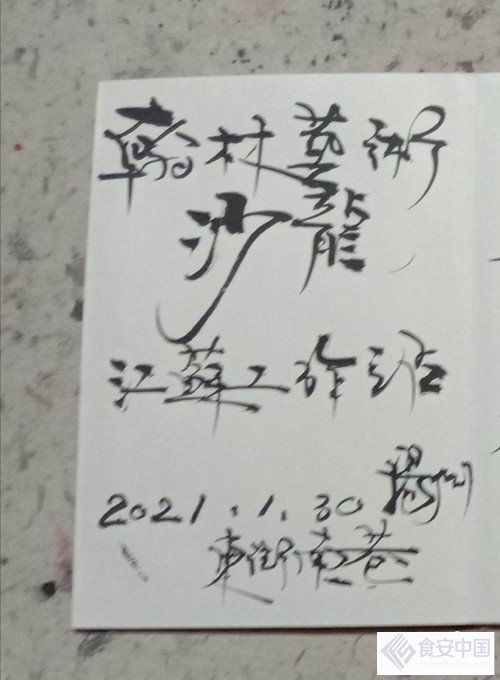 翰村藝術
沙龍
江蘇工作站
2021.1.30 揚州
東街南巷
食安中国